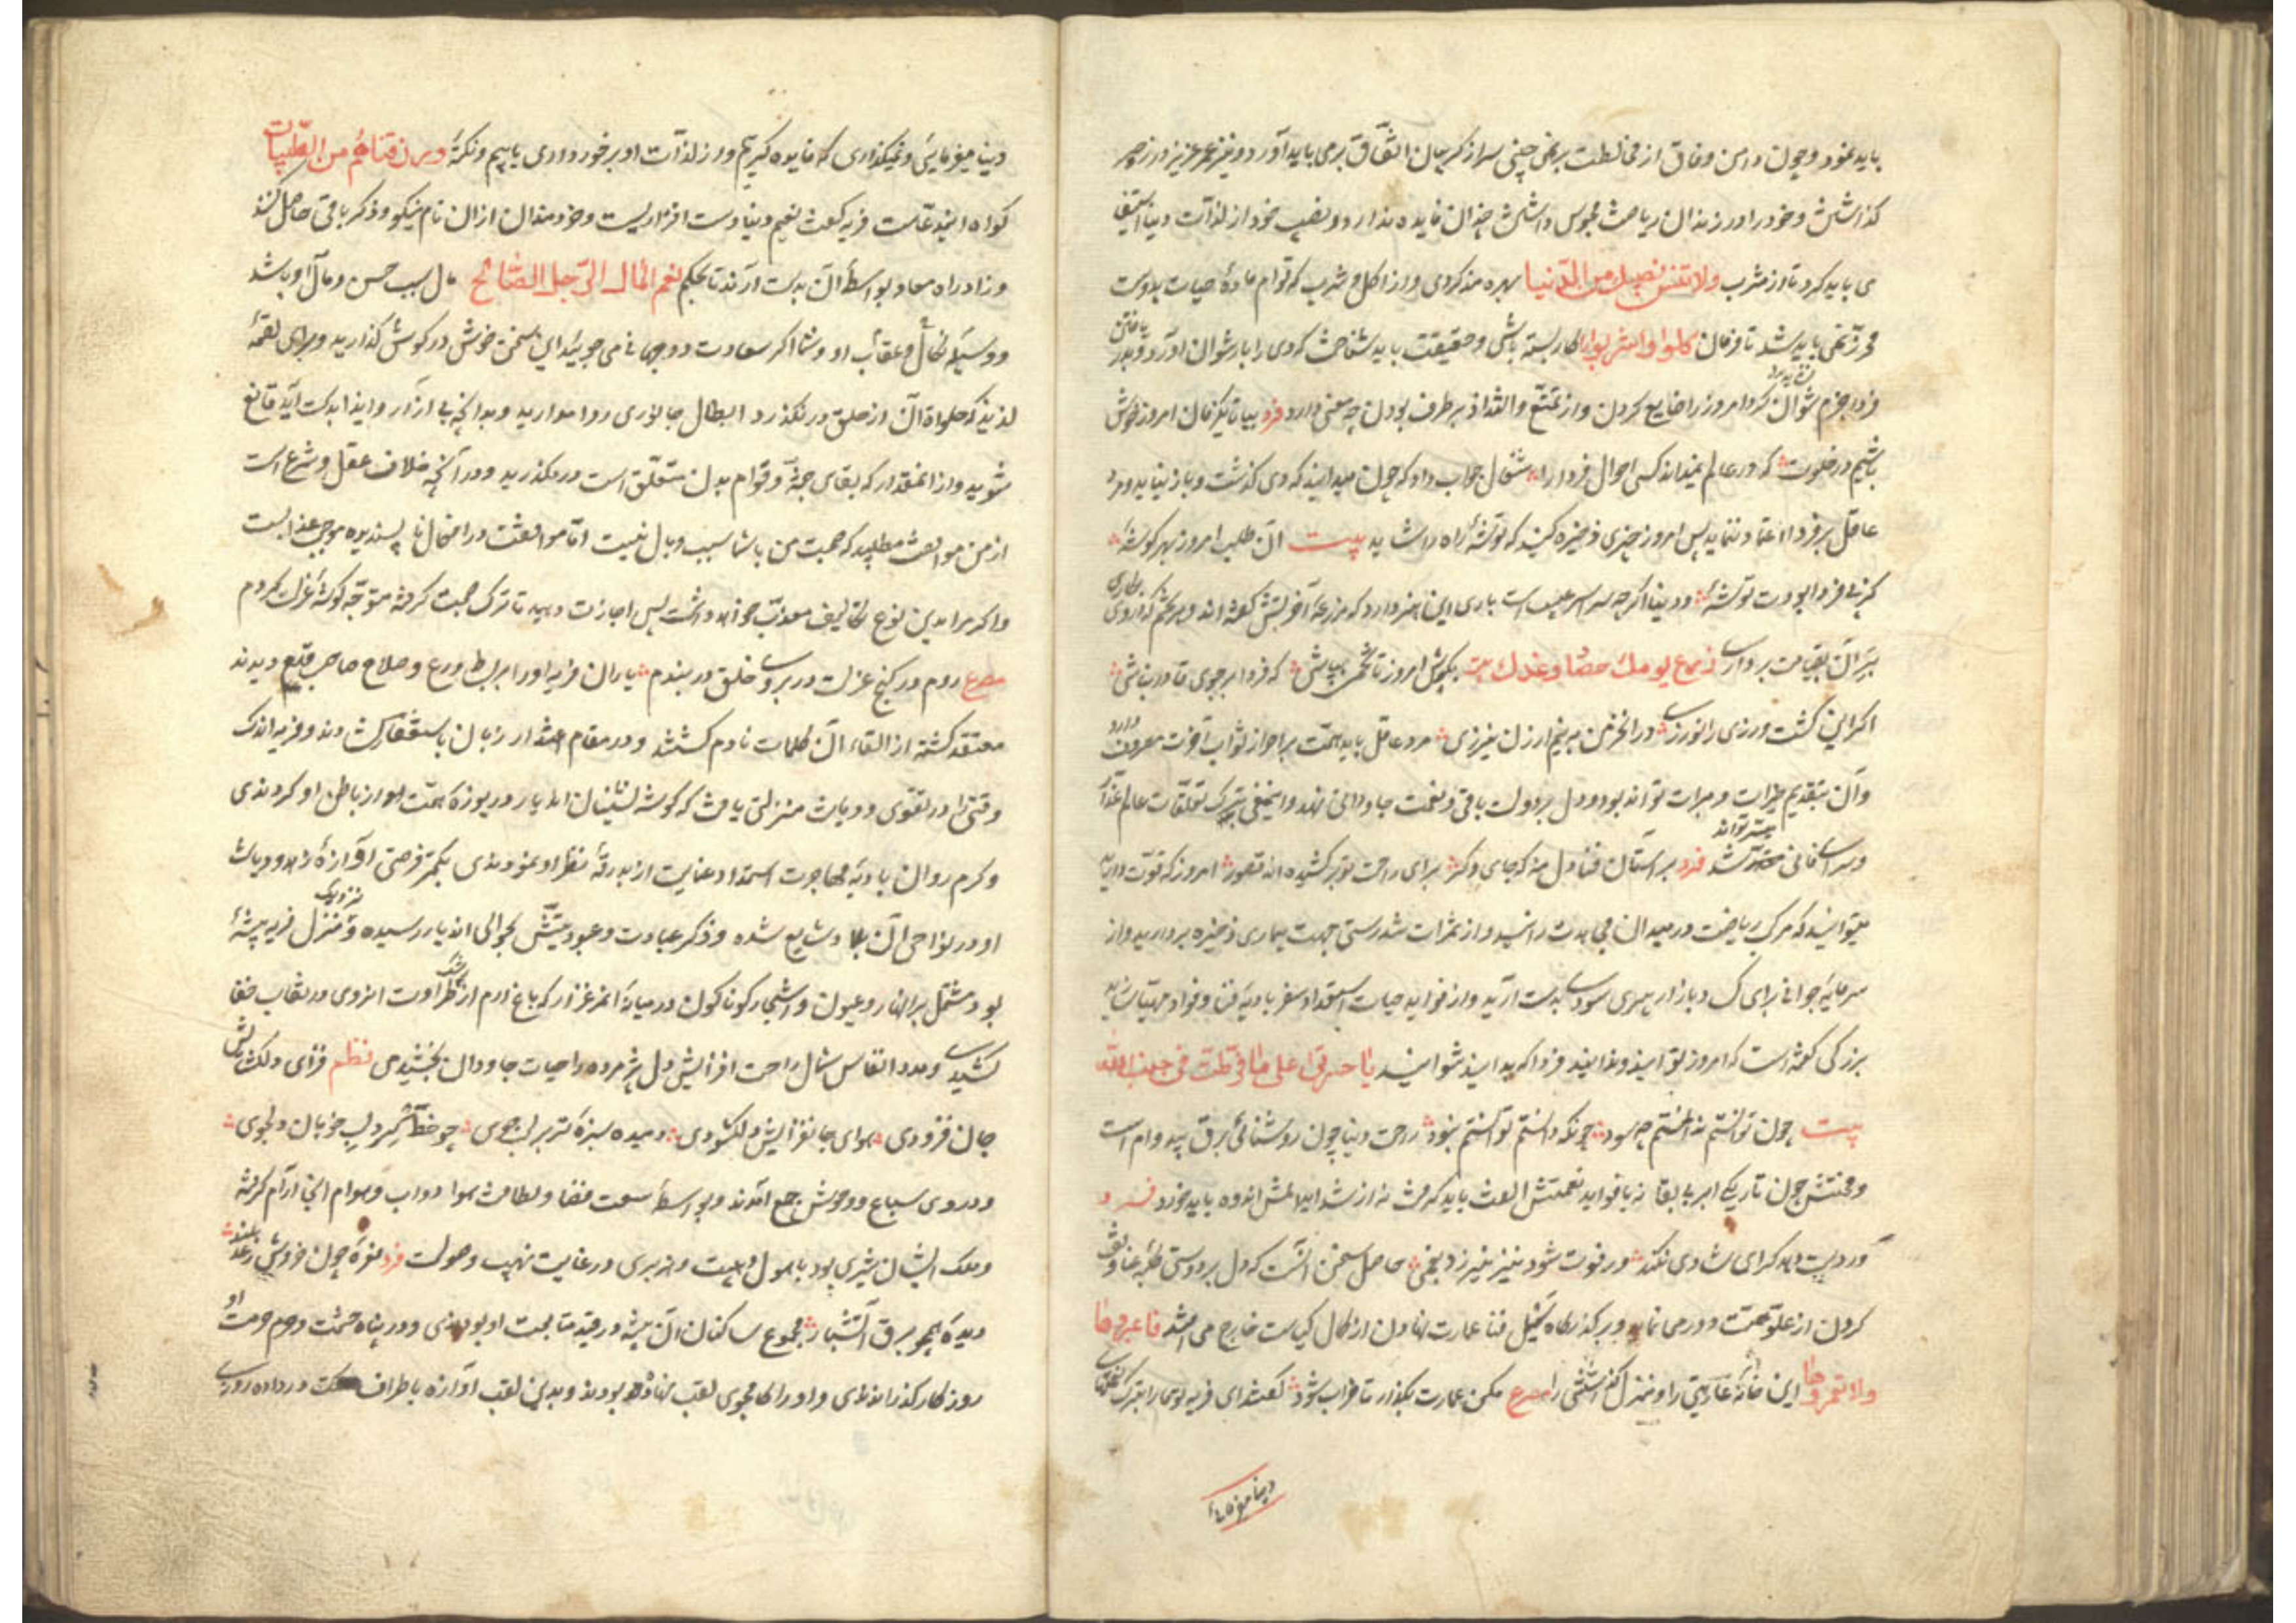 باید نمود و چون دامن وفاق از مخالطت برنمی چینی سر از کریبان اتفاق برمی باید آورد و نیز عمر عزیز در زجر
کذاشتن و خود را در زندان ریاضت محبوس داشتن چندان فایده ندارد و نصیب خود از لذات دنیا استیفا
می باید کرد تا از مشرب ولا تنس نصیبک من الدنیا بهره مند کردی و از اکل و شرب که قوام ماده حیات بدوست
محرز نمی باید شد تا فرمان کلوا واشربوا را کار بسته باشی و حقیقت باید شناخت که دی را باز نتوان آورد و بدر یافتن
فردا جزم نتوان کرد امروز را ضایع کردن و از تمتع و التذاذ برطرف بودن چه معنی دارد فرد بیا تا یکزمان امروز خوش
باشیم در خلوت که در عالم نمیداند کسی احوال فردا را شغال جواب داد که چون میدانید که دی کذشت و باز نیاید و مرد
عاقل بر فردا اعتماد ننماید پس امروز چیزی ذخیره کنید که توشهٔ راه را شاید بیت آن طلب امروز بهر کوشهٔ
کز پی فردا بودت توشهٔ و دنیا اکرچه سراسر عیب است باری این هنر دارد که مزرعهٔ آخرتش کفته اند و هر تخم که در وی بکاری
بر آن بقیامت برداری زرع یومک حصاد غدک بیت بکوش امروز تا تخمی بپاشی که فردا بر جوی قادر نباشی
اکر این کشت ورزی را نورزی در آن خرمن بنیم ارزن نیرزی مرد عاقل باید همت بر احراز ثواب آخرت مصروف دارد
و آن بتقدیم خیرات و مبرات تواند بود و دل بر دولت باقی و نعمت جاودانی نهد و اینمعنی بترک تعلقات عالم غدار
و سرای فانی میسر تواند شد فرد بر آستان فنا دل منه که جای دکر برای راحت تو بر کشیده اند قصور امروز که قوت دارید
میتوانید که مرکب ریاضت در میدان مجاهدت رانید و از ثمرات تندرستی جهت بیماری ذخیره بردارید و از
سرمایهٔ جوانی برای کساد بازار پیری سودی بدست آرید و از فواید حیات استعداد سفر بادیهٔ فنا و فوات مهیا سازید
بزرکی کفته است که امروز توانید و ندانید و فردا که بدانید نتوانید یا حسرتی علی ما فرطت فی جنب الله
بیت چون توانستم ندانستم چه سود چونکه دانستم توانستم نبود راحت دنیا چون روشنائی برق بیدوام است
و محنتش چون تاریکی ابر بی بقا نه با فواید نعمتش الفت باید کرفت نه از شداید المش اندوه باید خورد فرد
کر دست دهد کرای شادی نکند ور فوت شود نیز نیرزد بغمی حاصل سخن آنست که دل بر دوستی طلبه عنا وقف
کردن از علو همت دور می نماید و بر کذرکاه سیل فنا عمارت نهادن از کمال کیاست خارج می افتد فاعبروها
ولا تعمروها این خانهٔ عاریتی را و منزل کذاشتنی را مصرع مکن عمارت بکذار تا خراب شود کفتند ای فریسه تو ما را بترک نعیم
دنیا میفرمائی
دنیا میفرمائی و نمیکذاری که فایده کیریم و از لذات او برخورداری یابیم و نکتهٔ ورزقناهم من الطیبات
کواه این مدعاست فریسه کفت نعیم دنیا دست افزاریست و خردمندان از ان نام نیکو و ذکر باقی حاصل کنند
و زاد راه معاد بواسطهٔ آن بدست آرند تا بحکم نعم المال الرجل الصالح مال سبب حسن و مآل او باشد
و وسیلهٔ نکال و عقاب او و شما اکر سعادت دو جهانی می جوئید این سخن خوش در کوش کذارید و برای لقمهٔ
لذیذ که حلاوة آن از حلق درنکذرد ابطال جانوری روا مدارید و بدانچه بی آزار و ایذا بدست آید قانع
شوید و از انمقدار که بقای جثه و قوام بدن متعلق است درمکذرید و در آنچه خلاف عقل و شرع است
از من موافقت مطلبید که صحبت من با شما سبب وبال نیست اما موافقت در افعال ناپسندیده موجب عذابست
و اکر مرا بدین نوع تکالیف معذب خواهید داشت پس اجازت دهید تا ترک صحبت کرفته متوجه کوشهٔ عزلت کردم
مصرع روم در کنج عزلت در بروی خلق دربندم یاران فریسه او را بر بساط ورع و صلاح صاحب قدم دیدند
معتقد کشته از القاء آن کلمات نادم کشتند و در مقام اعتذار زبان باستغفار کشادند و فریسه اندک
وقتی را در تقوی و دیانت منزلتی یافت که کوشه نشینان اندیار دریوزهٔ همت او از باطن او کردندی
و کرم روان بادیهٔ مهاجرت استمداد عنایت از بدرقهٔ نظر او نمودندی بکمتر فرصتی آوازهٔ زهد و دیانت
او در نواحی آن بلاد شایع شده و ذکر عبادت و عبودیتش بحوالی اندیار رسیده و نزدیک منزل فریسه بیشهٔ
بود مشتمل بر انهار و عیون و اشجار کوناکون در میانهٔ آن مرغزار که باغ ارم از رشک طراوت او روی در نقاب خفا
کشیدی و مدد انفاس شمال راحت افزایش دل پژمرده را حیات جاودان بخشیدی نظم فزای دلکشایش
جان فزودی هوای جانفزایش دلکشودی دمیده سبزهٔ تر بر لب جوی چو خط کرد لب خوبان دلجوی
و در وی سباع و وحوش جمع آمدند و بواسطهٔ سعت فضا و لطافت هوا دواب و هوام انجا آرام کرفته
و ملک ایشان شیری بود با هول و هیبت و هزبری در غایت نهیب و صولت فرد نعره چون خروش رعد بلند
دیده همچو برق آتشبار مجموع ساکنان آن بیشه در قید متابعت او بودندی و در پناه حشمت و حرم حرمت او
روزکار کذرانیدی و او را کامجوی لقب نهاده بودند و بدین لقب آوازه باطراف مملکت درداده روزی